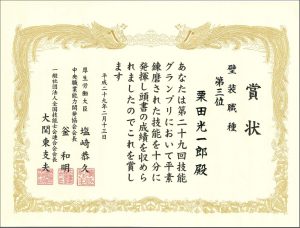 賞状
壁装職種
第三位
栗田光一郎殿
あなたは第二十九回技能
グランプリにおいて平素
錬磨された技能を十分に
発揮し頭書の成績を収めら
れましたのでこれを賞し
ます
平成二十九年二月十三日
厚生労働大臣
塩崎恭久
中央職業能力開発協会会長
釜和明
一般社団法人全国技能士会連合会会長
大関東支夫